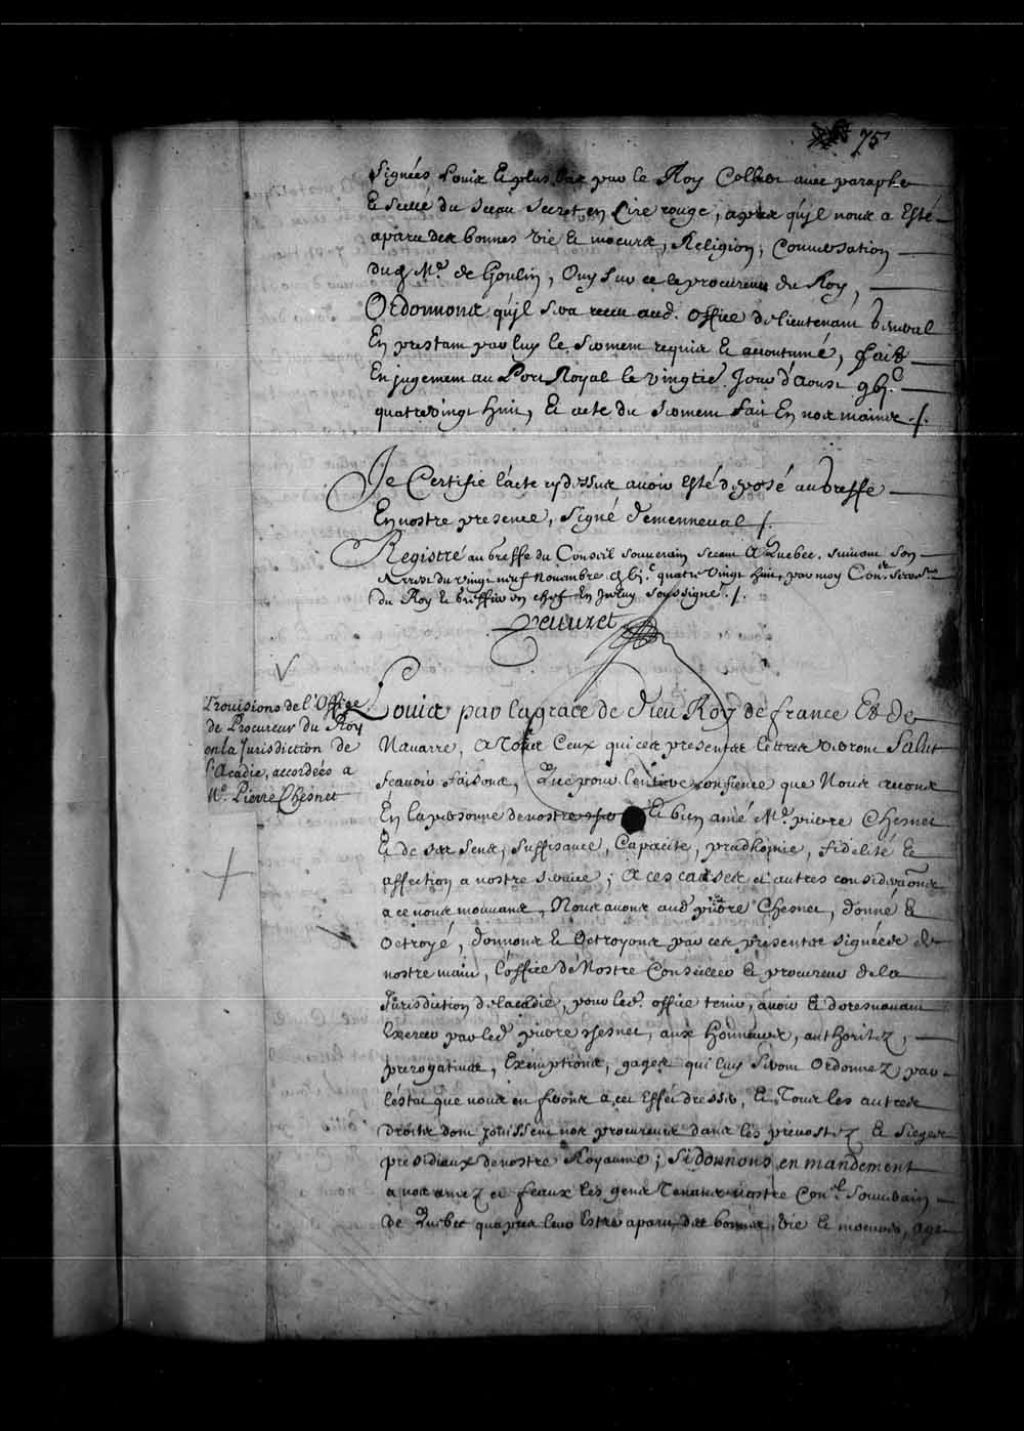 75
Signées Louis Et plus bas par le Roy Colbert avec paraphe
Et scellé du sceau secret en Cire rouge, apres qu'jl nous a Esté
aparu des bonnes vie Et moeurs, Religion, Conversation
dud Mr. de Goutin, Ouy sur ce le procureur du Roy,
Ordonnons qu'jl sera receu aud. office de lieutenant general
En prestant par luy le serment requis Et accoutumé, fait
En jugement au Port Royal le vingtie. Jour d'aoust gbjc
quatre vingt huit, Et acte du serment fait En nos mains ./.
Je Certifie l'acte cy dessus avoir Esté deposé au Greffe
En nostre presence, signé demenneval /.
Registré au Greffe du Conseil souverain seant A Quebec, suivant son
arrest du vingt neuf novembre gbjc quatre vingt huit, par moy Coner. secretre
du Roy Et Greffier en chef En jceluy soussigné ./.
Peuvret
Provisions de l'Office
de Procureur du Roy
en la Jurisdiction de
l'Acadie, accordées a
Mr. Pierre Chesnet
Louis par la grace de Dieu Roy de france Et de
Navarre, A Tous Ceux qui ces presentes lettres verront Salut
scavoir faisons, Que pour l'entiere confience que Nous avons
En la personne de nostre Et bien amé Mr. pierre Chesnet
Et de ses sens, suffisance, Capacité, prudhomie, fidelité Et
affection a nostre service; A ces causes et autres consideraons
a ce nous mouvans, Nous avons aud pierre Chesnet, donné Et
Octroyé, donnons Et Octroyons par ces presentes signées de
nostre main, l'office de Nostre Conseiller Et procureur de la
Jurisdiction de lacadie, pour led. office tenir, avoir Et doresnavant
Exercer par led pierre chesnet, aux Honneurs, authoritez,
prerogatives, Exemptions, gages qui luy seront Ordonnez par
l'estat que nous en ferons a cet Effet dresser, Et Tous les autres
droits dont jouissent nos procureurs dans les prevostez Et Sieges
presidiaux de nostre Royaume; Si donnons en mandement
a nos amez et feaux les gens Tenans nostre Conel. Souverain
de Quebec qu'apres leur Estre aparu des bonnes vie Et moeurs, age